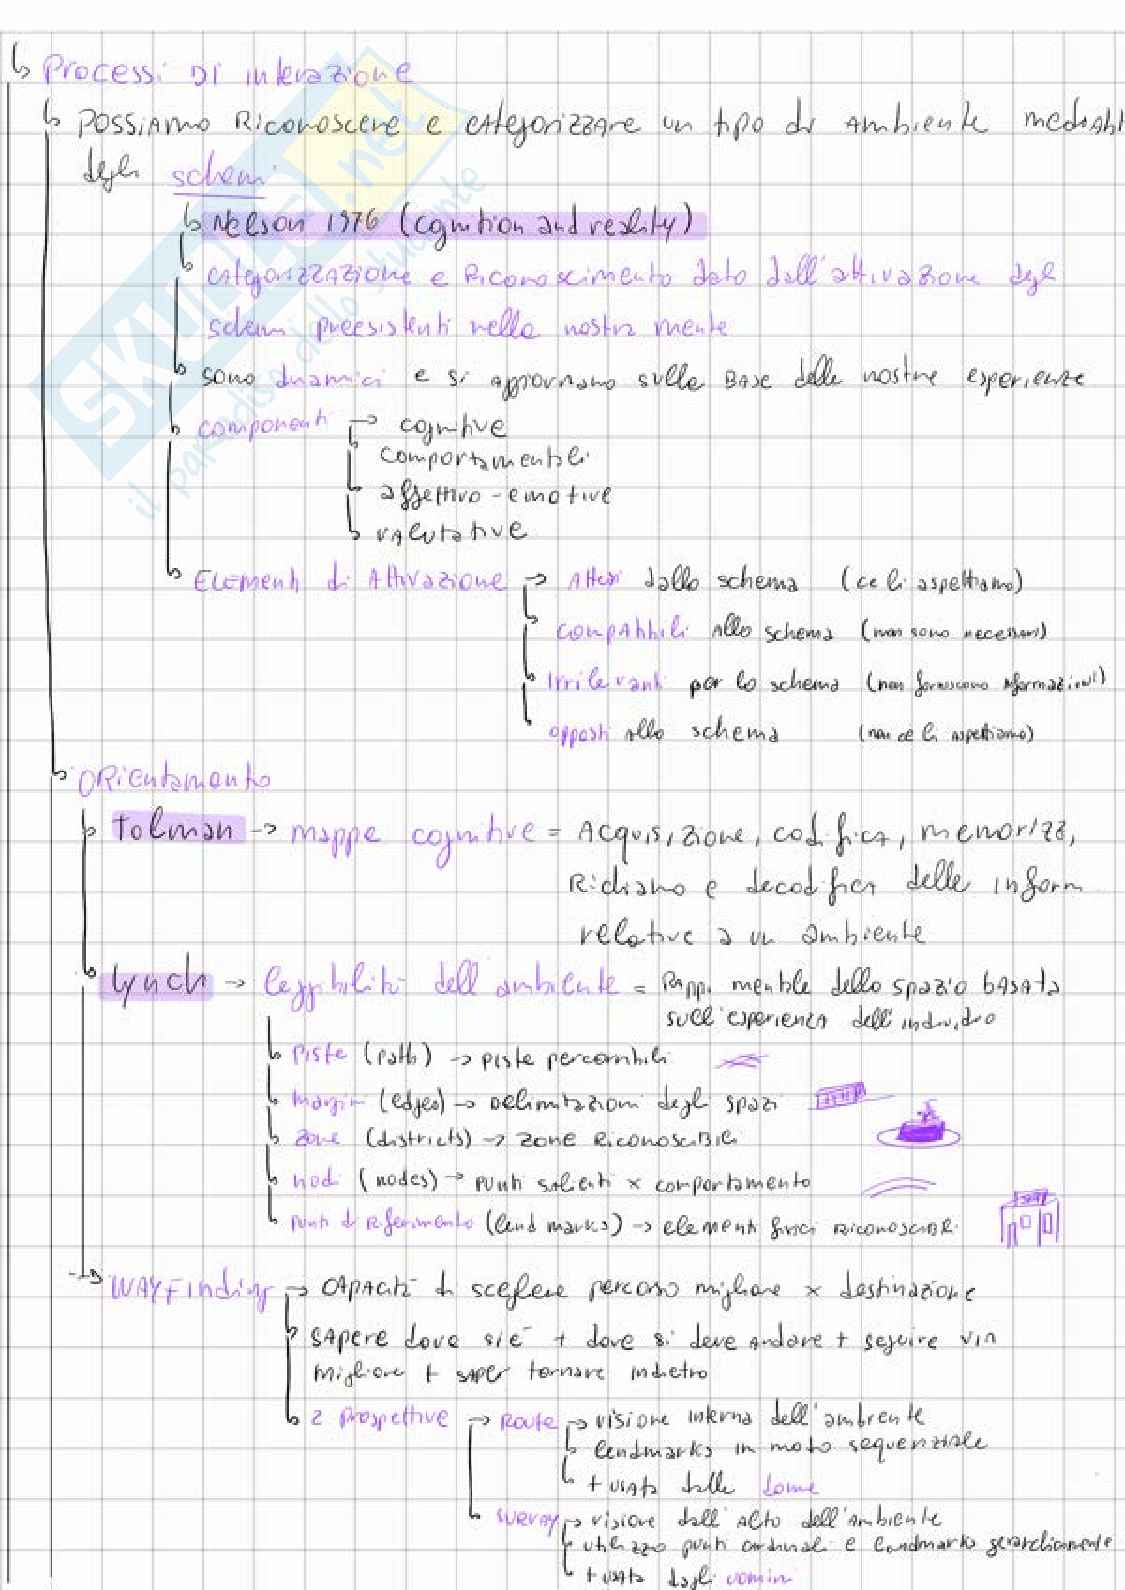 ↳ Processi DI interazione
↳ POSSIAMO RICONOSCERE e CATEgORIZZARE un tipo di AMBIENTE mediANT
degli schemi
↳ Nelson 1976 (Cognition and reality)
↳ CATEgORIZZAZIONE e RICONOSCIMENTO dato dall'attivazione degli
schemi preesistenti nella nostra mente
↳ sono dinamici e si aggiornano sulla BASE delle nostre esperienze
↳ COMPONENTI → cognitive
comportamentali
↳ affettivo-emotive
↳ VALUTATIVE
↳ ELEMENTI di ATTIVAZIONE → ATTESI dallo schema (ce li aspettiamo)
↳ COMPATIBILI ALLO schema (non sono necessari)
↳ Irrilevanti per lo schema (non forniscono informazioni)
↳ opposti ALLO schema (non ce li aspettiamo)
↳ ORIENTAMENTO
↳ Tolman → mappe cognitive = ACQUISIZIONE, codifica, memorizz,
Richiamo e decodifica delle inform
relative a un ambiente
↳ Lynch → leggibilità dell'ambiente = Rapp. mentale dello spazio bASATA
sull'esperienza dell'individuo
↳ Piste (path) → piste percorribili
↳ Margini (edges) → DELIMITAZIONI degli spazi
↳ Zone (districts) → ZONE RICONOSCIBILI
↳ nodi (nodes) → PUNTI salienti x comportamento
↳ PUNTI di Riferimento (land marks) → elementi fisici RICONOSCIBILI
→ WAYFinding → CAPACITÀ di scegliere percorso migliore x destinazione
↳ SAPERE dove si è + dove si deve andare + seguire via
migliore + saper tornare indietro
↳ 2 Prospettive → Route → visione interna dell'ambiente
↳ landmarks in modo sequenziale
↳ + USATA dalle donne
↳ SURVAY → visione dall'ALTO dell'Ambiente
↳ utilizzo punti cardinali e landmarks gerarchicamente
↳ + usata dagli uomini
SKUOLA.net
il paradiso dello studente